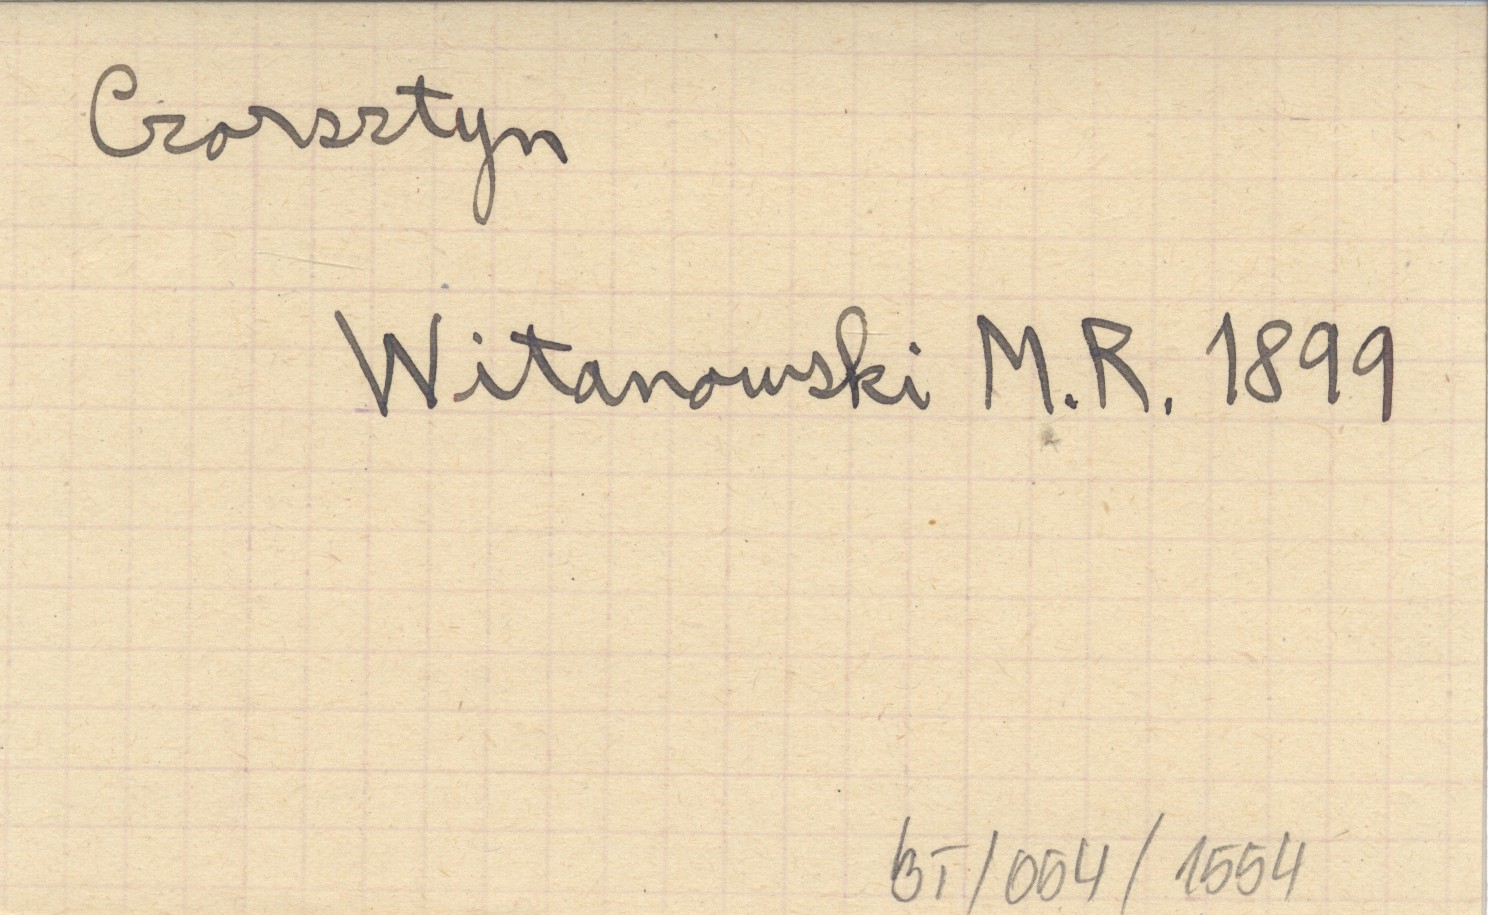 Czorsztyn
Witanowski M.R. 1899
BT/054/1554